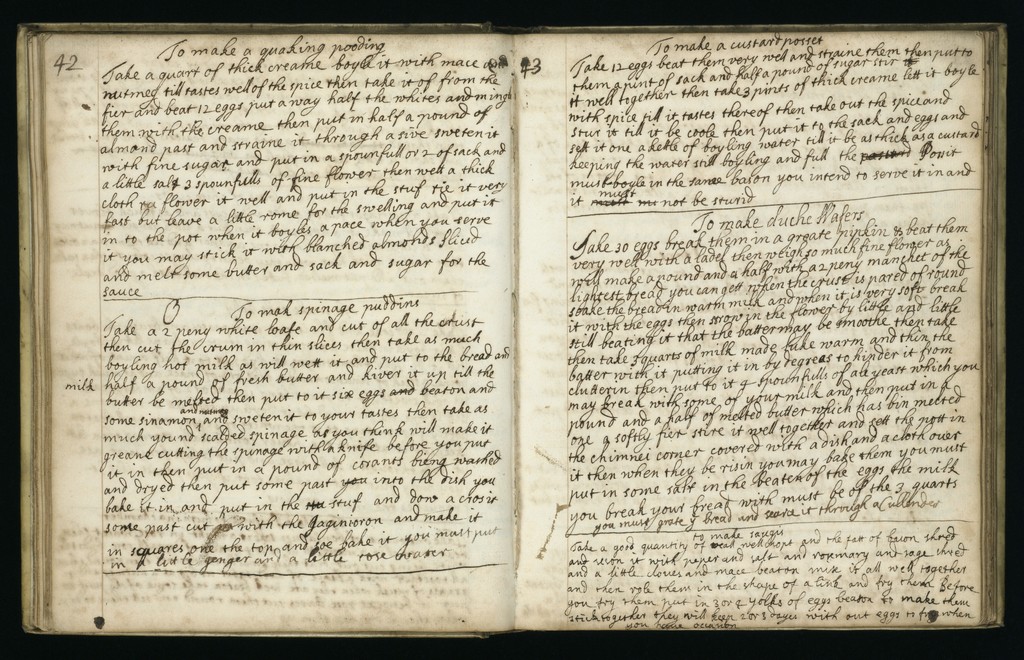 42
To make a quaking pooding
Take a quart of thick creame boyle it with mace
nutmeg till tastes well of the spice then take it of from the
fier and beat 12 eggs put a way half the whites and mingle
them with the creame then put in half a pound of
almond past and straine it through a sive sweten it
with fine sugar and put in a spounfull or 2 of sack and
a little salt 3 spounfulls of fine flower then well a thick
cloth flower it well and put in the stuf tie it very
fast but leave a little rome for the swelling and put it
in to the pot when it boyles a pace when you serve
it you may stick it with blanched almonds sliced
and melt some butter and sack and sugar for the
sauce
To mak spinage puddins
Take a 2 peny white loafe and cut of all the crust
then cut the crum in thin slices then take as much
boyling hot milk as will wett it and put to the bread and
milk
half a pound of fresh butter and kiver it up till the
butter be melted then put to it six eggs and beaton and
some sinamon and nutmeg and sweten it to your tastes then take as
much yound scalded spinage as you think will make it
greane cutting the spinage with knife before you put
it in then put in a pound of corants being washed
and dryed then put some past you into the dish you
bake it in and put in the stuf and dow a crosit
some past cut with the Jagintoron and make it
in squares one the top and soe bake it you must put
in a little genger and a little rose
43
To make a custard posset
Take 12 eggs beat them very well and straine them then put to
them a pint of sack and half a pound of sugar stir it
it well together then take 3 pints of thick creame lett it boyle
with spice till it tastes thereof then take out the spice and
stur it till it be coole then put it to the sack and eggs and
sett it one a ketle of boyling water till it be as thick as a custard
keeping the water still boyling and full the Possit
must boyle in the same bason you intend to serve it in and
it must not be sturd
To make duche Wafers
Take 30 eggs break them in a greate pipkin & beat them
very well with a ladel then weigh so much fine flower as
will make a pound and a half with a 2 peny manchet of the
lightest bread you can gett when the crust is pared of round
soake the bread in warm milk and when it is very soft break
it with the eggs then strow in the flower by little and little
still beating it that the batter may be smoothe then take
then take 3 quarts of milk made luke warm and thin the
batter with it putting it in by degreas to hinder it from
clutterin then put to it 4 spounfulls of ale yeast which you
may break with some of your milk and then put in a
pound and a half of melted butter which has bin melted
one a softly fier stire it well together and sett the pott in
the chimney corner covered with a dish and a cloth over
it then when they be risin you may bake them you must
put in some salt in the beaten of the eggs the milk
you break your bread with must be of the 3 quarts
you must grate bread and it through a Cullender
to make saugis
Take a good quantity of veal well chopt and the fatt of bacon shred
and seson it with peper and salt and rosmary and sage shred
and a little cloves and mace beaton mix it all well together
and then role them in the shape of a link and fry them Before
you fry them put in 3 or 4 yolks of eggs beaton to make them
stick together they will keep 2 or 3 dayes with out eggs to fry when
you have occation